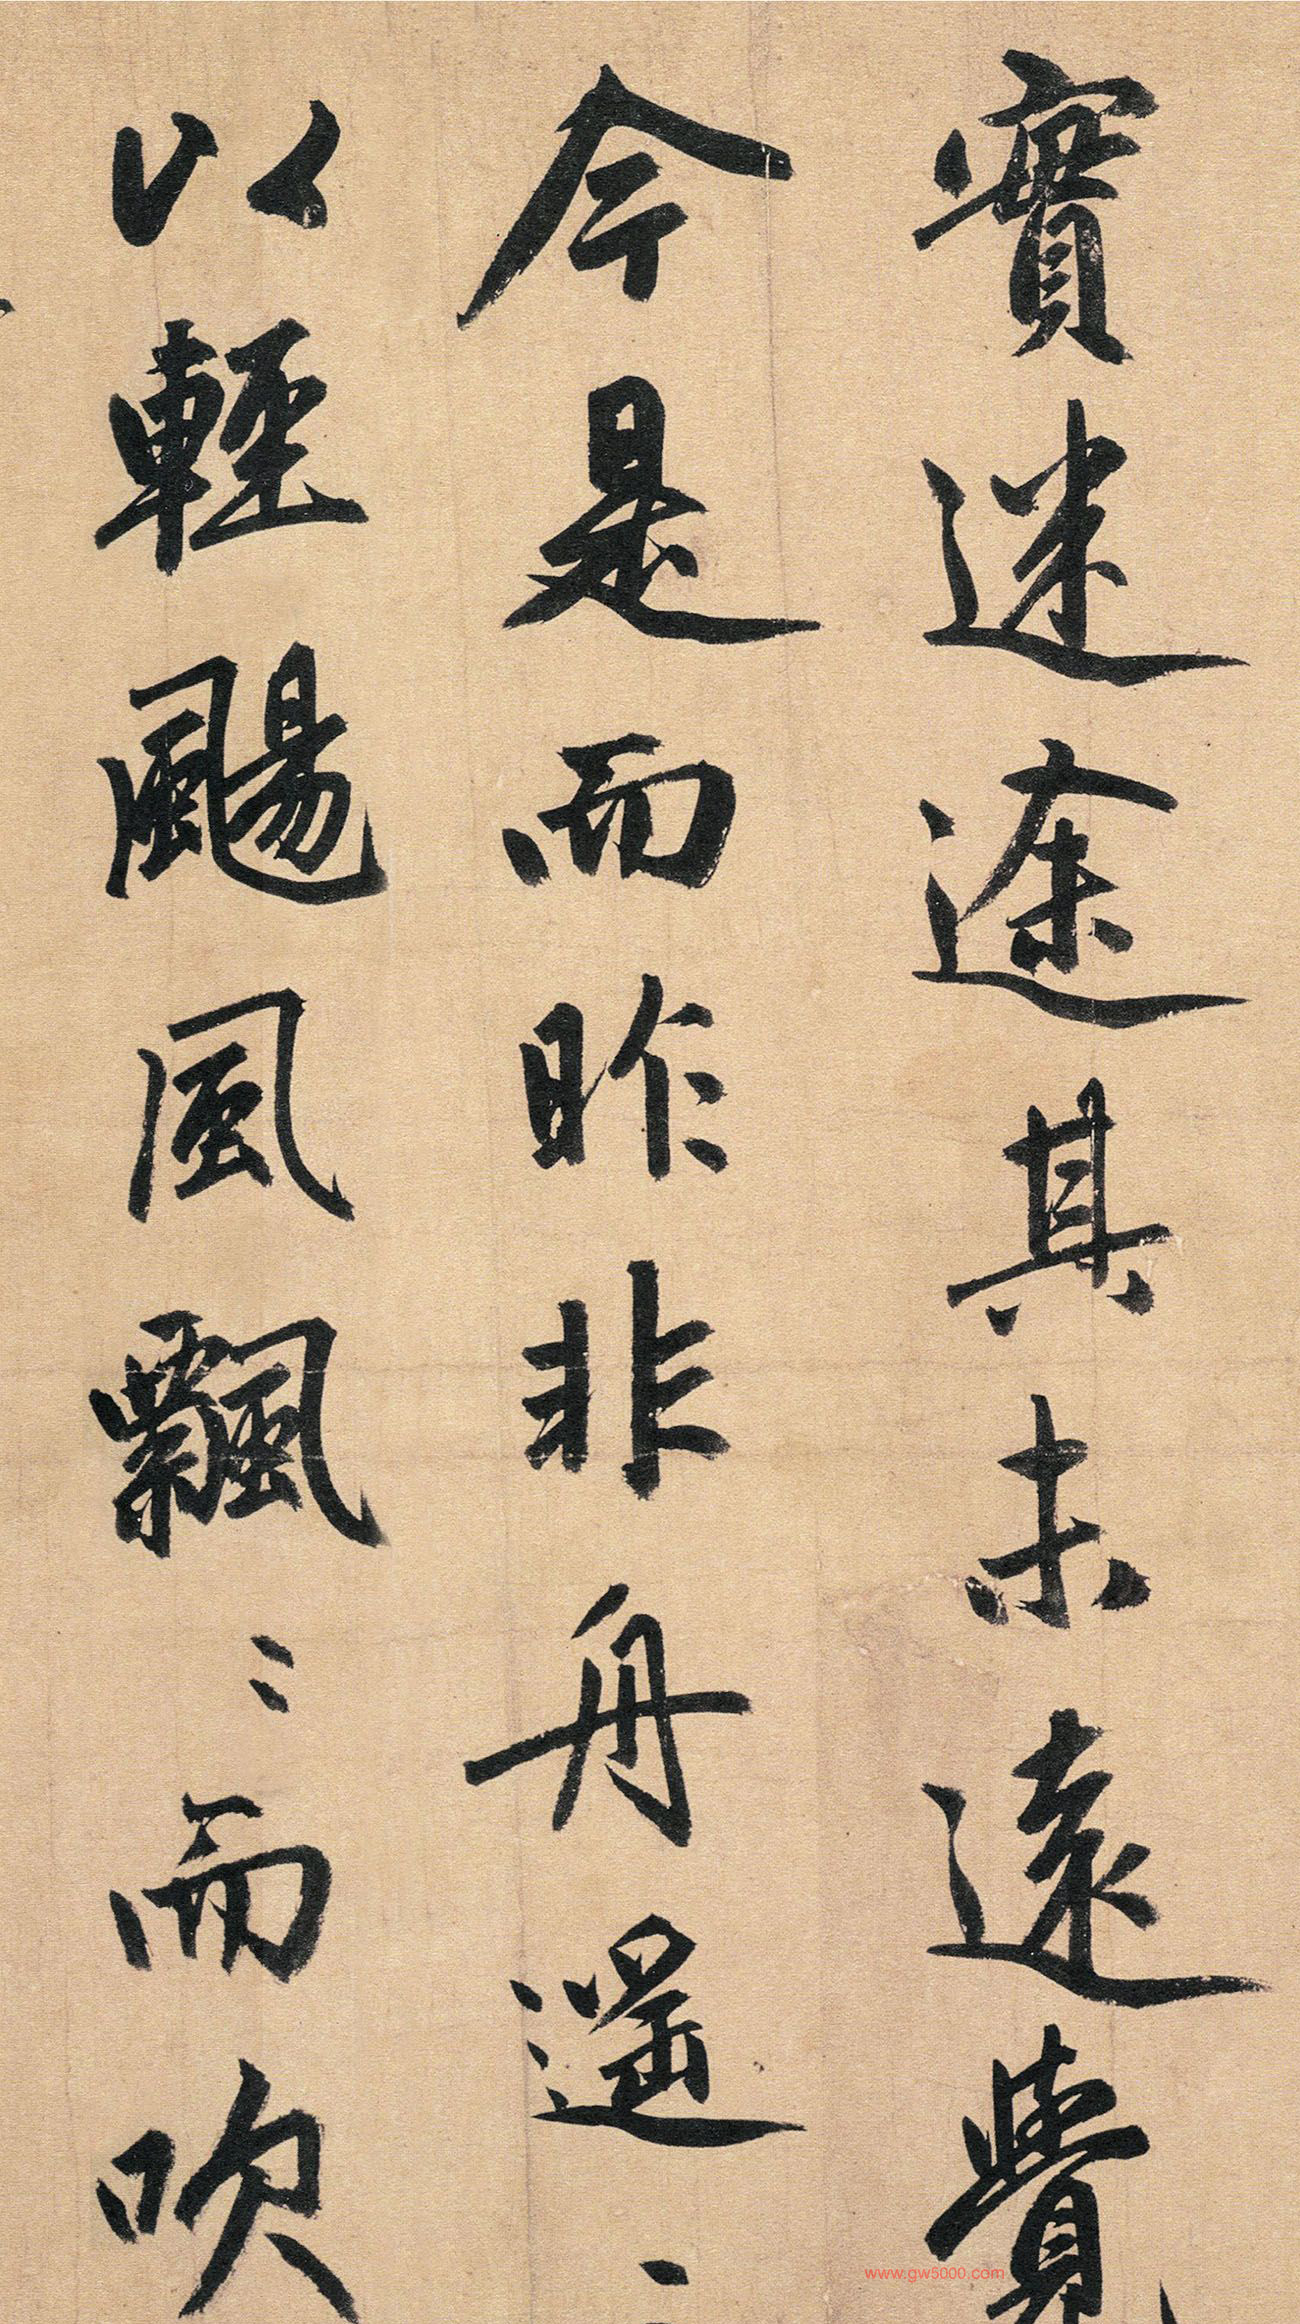 實迷途其未遠覺
今是而昨非舟遙〻
以輕颺風飄〻而吹
www.gw5000.com